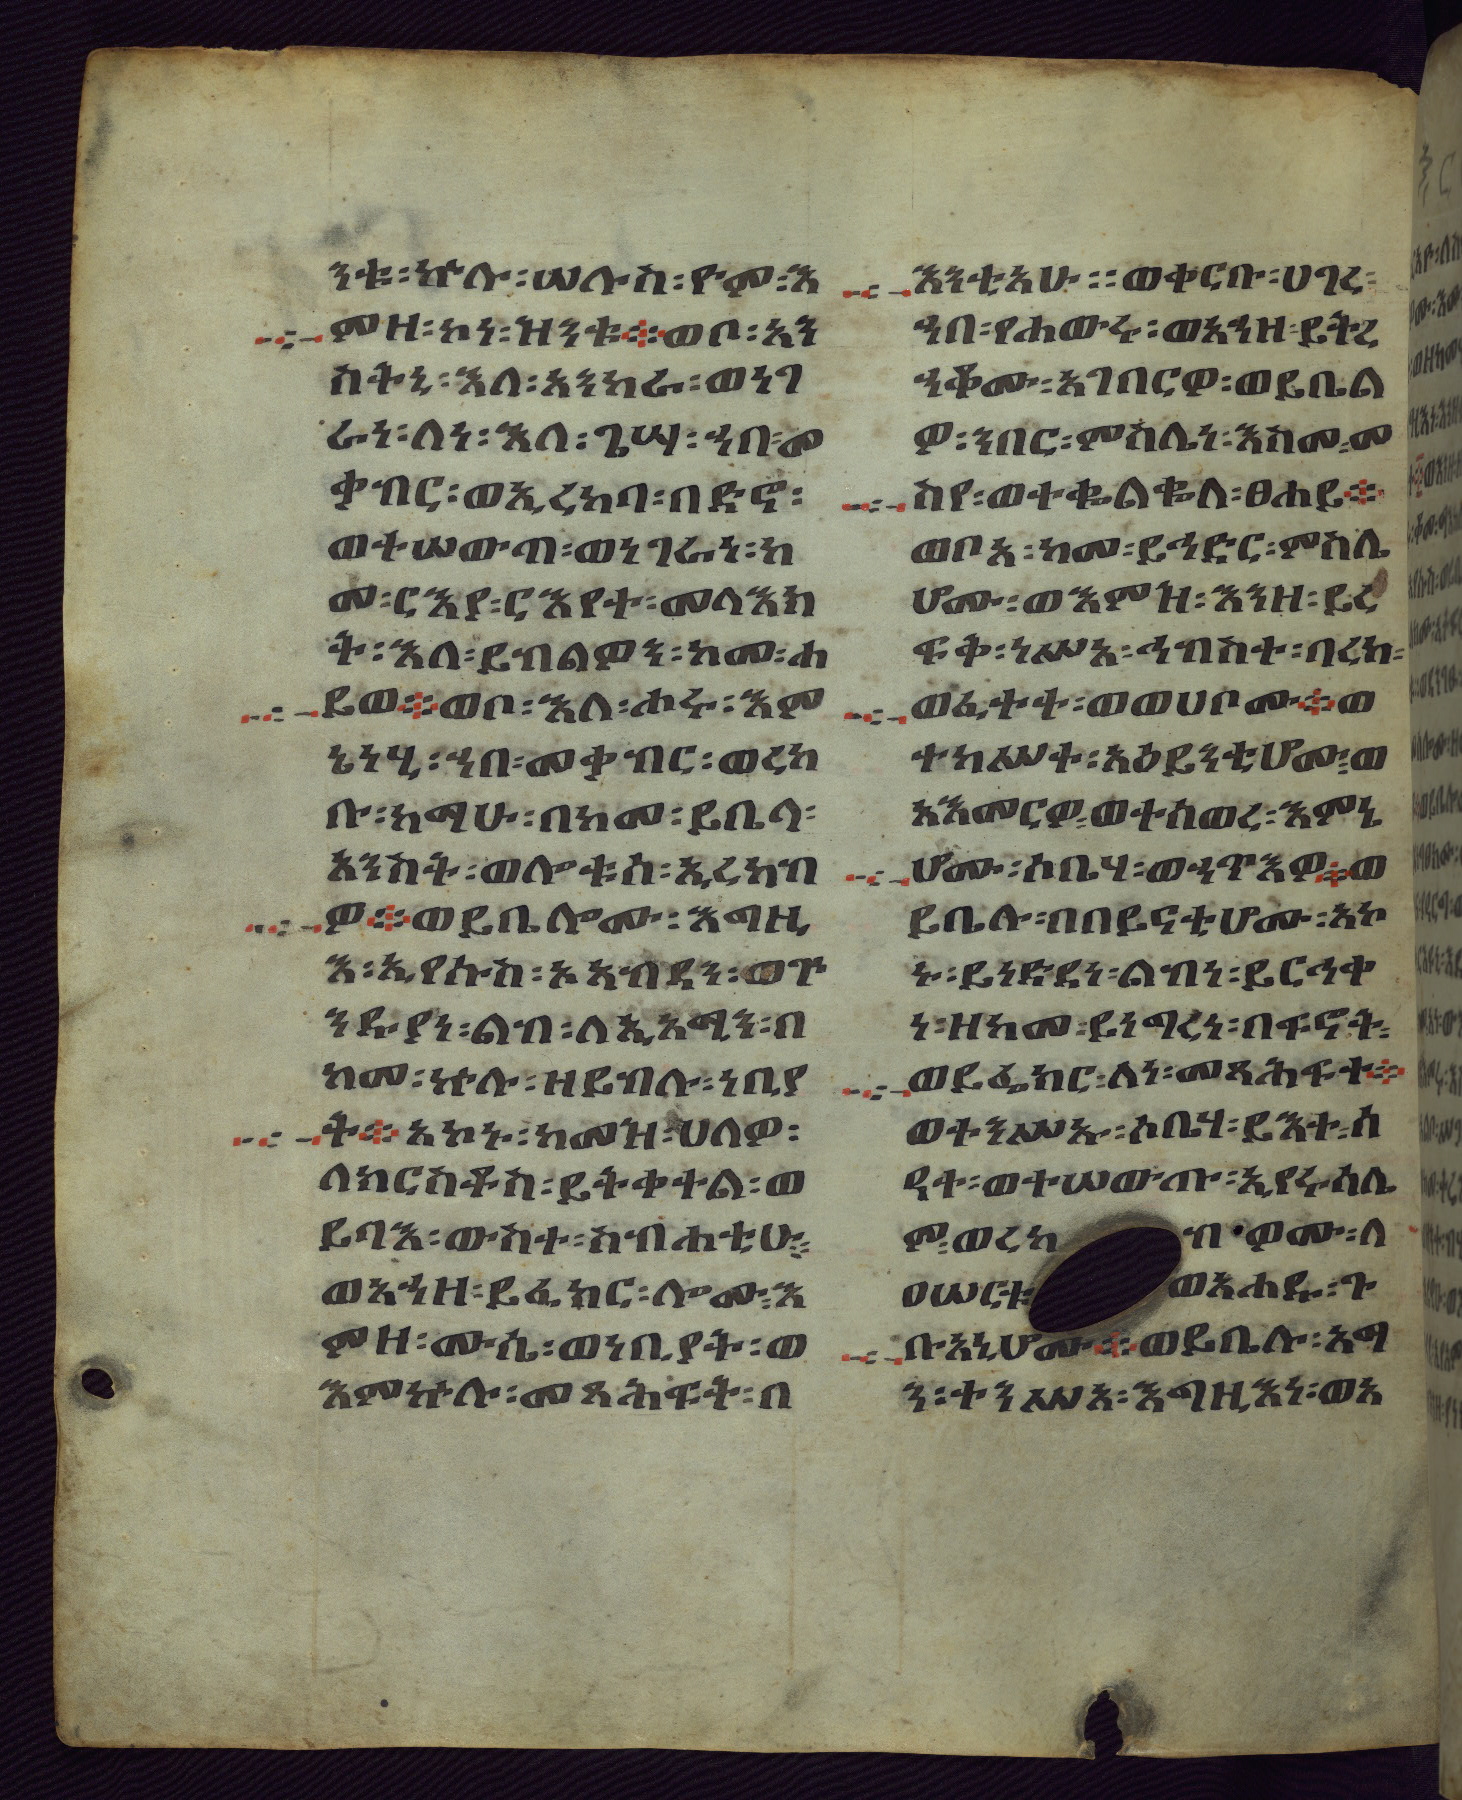 ንቱ፡ ኵሉ፡ ሠሉስ፡ ዮም፡ እ
ምዘ፡ ኮነ፡ ዝንቱ፨ ወቦ፡ አን
ስትኒ፡ እለ፡ አንከራ፡ ወነገ
ራነ፡ ለነ፡ እለ፡ ጌሣ፡ ኀበ፡ መ
ቃብር፡ ወኢረከባ፡ በድኖ፡
ወተሠውጣ፡ ወነገራነ፡ ከ
መ፡ ርእያ፡ ርእየተ፡ መላእክ
ት፡ እለ፡ ይብልዎን፡ ከመ፡ ሐ
ይወ፨ ወቦ፡ እለ፡ ሐሩ፡ እም
ኔነሂ፡ ኀበ፡ መቃብር፡ ወረከ
ቡ፡ ከማሁ፡ በከመ፡ ይቤላ፡
አንስት፡ ወሎቱሰ፡ ኢረከብ
ዎ፨ ወይቤሎሙ፡ እግዚ
እ፡ ኢየሱስ፡ ኦአብዳን፡ ወጕ
ንዱያነ፡ ልብ፡ ለኢአሚን፡ በ
ከመ፡ ኵሉ፡ ዘይብሉ፡ ነቢያ
ት፨ አኮኑ፡ ከመዝ፡ ሀለዎ፡
ለክርስቶስ፡ ይትቀተል፡ ወ
ይባእ፡ ውስተ፡ ስብሐቲሁ፡
ወአኀዘ፡ ይፈክር፡ ሎሙ፡ እ
ምዘ፡ ሙሴ፡ ወነቢያት፡ ወ
እምኵሉ፡ መጻሕፍት፡ በ
እንቲአሁ፡፡ ወቀርቡ፡ ሀገረ፡
ኀበ፡ የሐውሩ፡ ወአኀዘ፡ ይትረ
ኀቆሙ፡ አገበርዎ፡ ወይቤል
ዎ፡ ንበር፡ ምስሌነ፡ እስመ፡ መ
ስየ፡ ወተቈልቈለ፡ ፀሐይ፨
ወቦአ፡ ከመ፡ ይኅድር፡ ምስሌ
ሆሙ፡ ወእምዝ፡ እንዘ፡ ይረ
ፍቅ፡ ነሥአ፡ ኅብስተ፡ ባረከ፡
ወፈተተ፡ ወወሀቦሙ፨ ወ
ተከሥተ፡ አዕይንቲሆሙ፡ ወ
አእመርዎ፡ ወተሰወረ፡ እምኔ
ሆሙ፡ ሶቤሃ፡ ወኀጥእዎ፨ ወ
ይቤሉ፡ በበይናቲሆሙ፡ አኮ
ኑ፡ ይነድደነ፡ ልብነ፡ ይርኅቀ
ነ፡ ዘከመ፡ ይነግረነ፡ በፍኖት፡
ወይፌክር፡ ለነ፡ መጻሕፍተ፨
ወተንሥኡ፡ ሶቤሃ፡ ይእተ፡ ሰ
ዓተ፡ ወተሠውጡ፡ ኢየሩሳሌ
ም፡ ወረከ ብዎሙ፡ ለ
ዐሠርቱ ወአሐዱ፡ ጉ
ቡአኒሆሙ፨ ወይቤሉ፡ አማ
ን፡ ተንሥአ፡ እግዚእነ፡ ወአ